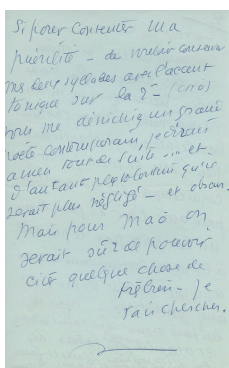 Si pour contenter ma
puérilité – de vouloir conserver
mes deux syllabes avec l'accent
tonique sur la 2e – (cno)
vous me dénichiez un grand
poète contemporain, je dirais
amen tout de suite... et
d'autant plus volontiers qu'il
serait plus négligé – et obscur.
Mais pour Mao on
serait sûr de pouvoir
citer quelque chose de
– je
vais chercher.